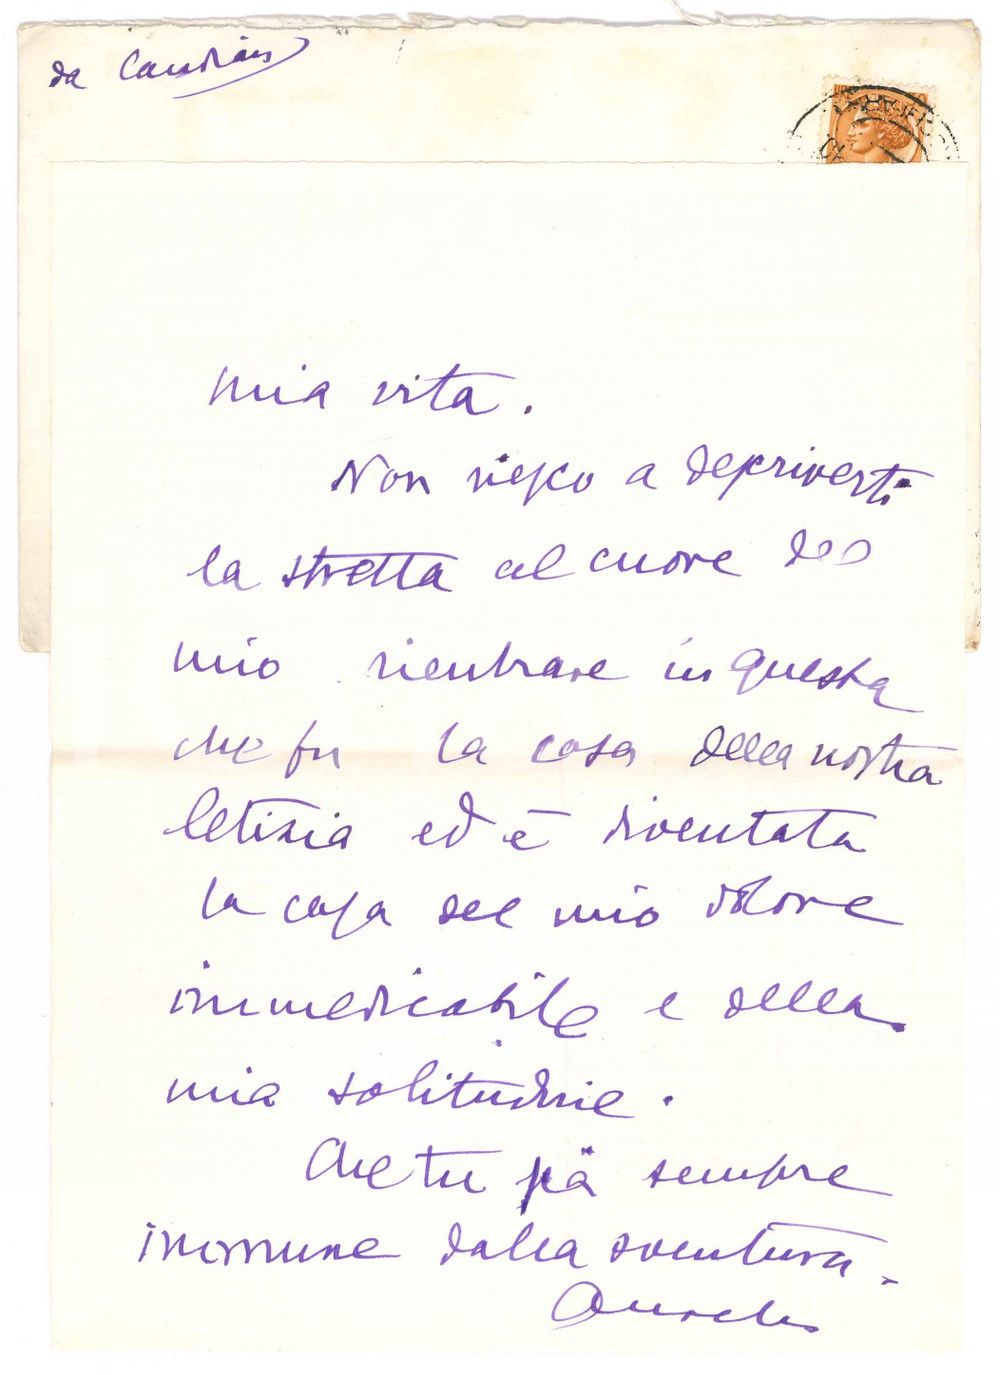 da Candian
mia vita.
Non riesco a descriverti
la stretta al cuore del
mio rientrare in questa
che fu la casa della nostra
letizia ed è diventata
la casa del mio dolore
immedicabile e della
mia solitudine.
Che tu sia sempre
immune dalla sventura.
Aurelio